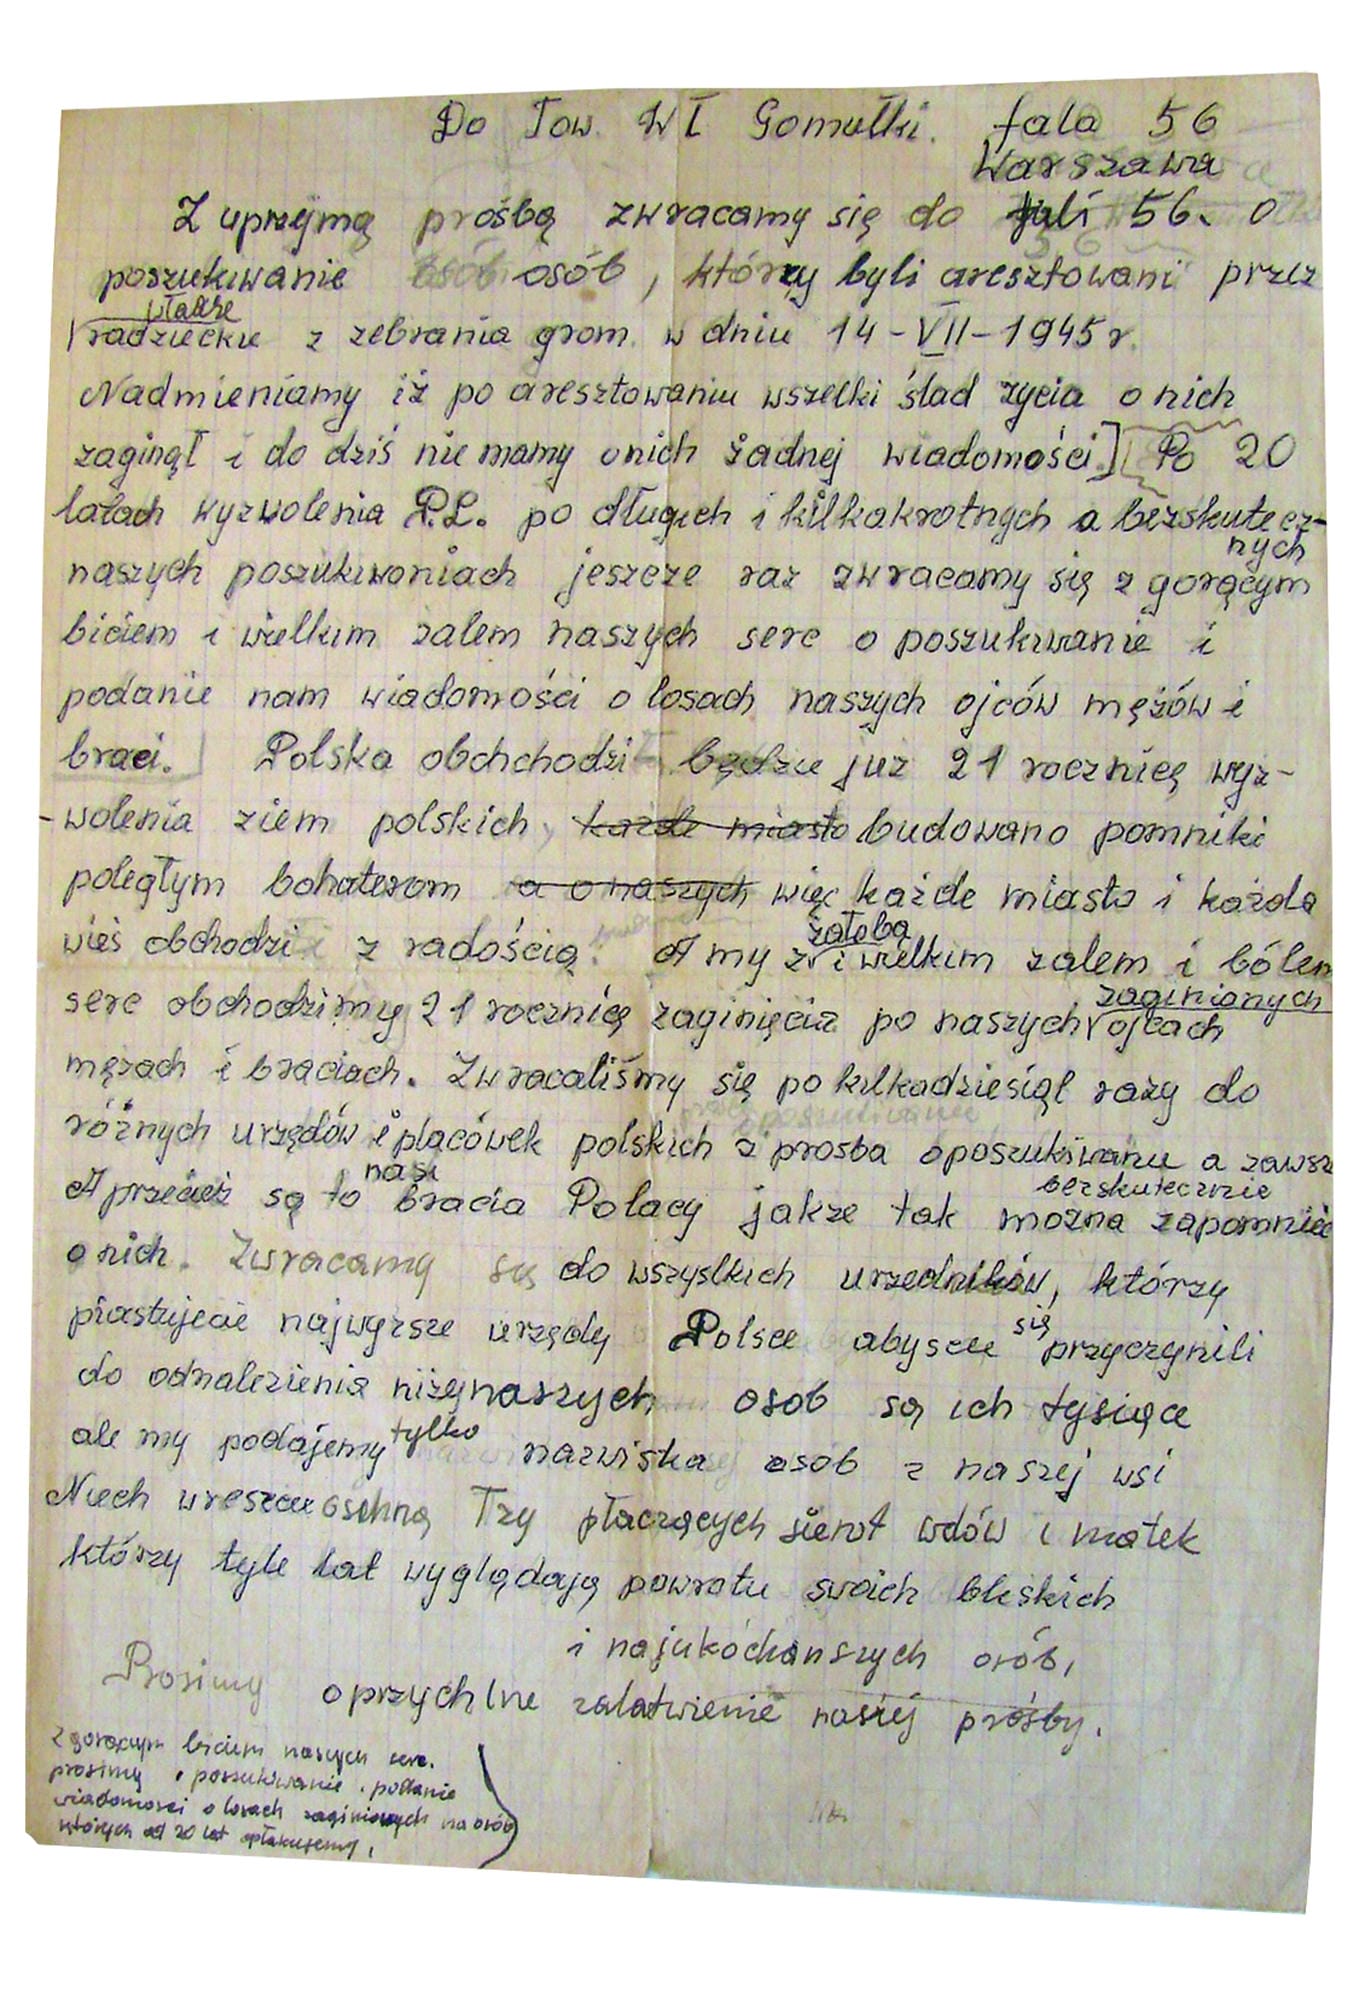 Do Tow. Wł Gomułki. fala 56
Warszawa
Z uprzejmą prośbą zwracamy się do fali 56. o
poszukiwanie osób, którzy byli aresztowani przez
władze
radzieckie z zebrania grom. w dniu 14-VII-1945 r.
Nadmieniamy iż po aresztowaniu wszelki ślad życia o nich
zaginął i do dziś nie mamy onich żadnej wiadomości.] [Po 20
latach wyzwolenia P.L. po długich i kilkakrotnych a bezskutecz-
nych
naszych poszukiwaniach jeszcze raz zwracamy się z gorącym
biciem i wielkim żalem naszych serc o poszukiwanie i
podanie nam wiadomości o losach naszych ojców mężów i
braci.] Polska obchchodzi będzie już 21 rocznicę wyz-
-wolenia ziem polskich, każde miasto budowano pomniki
poległym bohaterom a o naszych więc każde miasto i każda
wieś obchodzi z radością. A my z i wielkim żalem i bólem
żałobą
serc obchodzimy 21 rocznicę zaginięcia po naszych ojcach
zaginionych
mężach i braciach. Zwracaliśmy się po kilkadziesiąt razy do
różnych urzędów i placówek polskich z prośba oposzukiwaniu a zawsz
bezskutecznie
A przecież są to nasi bracia Polacy jakże tak można zapomnieć
o nich. Zwracamy się do wszystkich urzedników, którzy
piastujecie najwyższe urzędy Polsce abyscie się przyczynili
do odnalezienia niżej naszych osob są ich tysiące
ale my podajemy tylko nazwiska osób z naszej wsi
Niech wreszcie oschną łzy płaczących sierot wdów i matek
którzy tyle lat wyglądają powrotu swoich bliskich
i najukochanszych osób,
Prosimy oprzychlne załatwienie naszej prośby.
z gorącym biciem naszych serc.
prosimy o poszukiwanie i podanie
wiadomosci o losach zaginionych na osób
których od 20 lat opłakujemy,